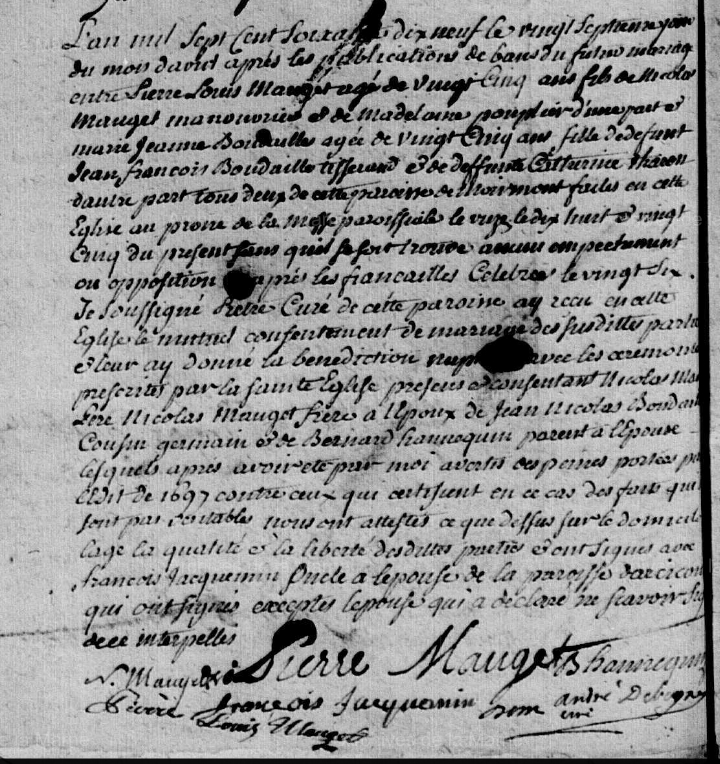 L'an mil Sept Cent Soixante dix neuf le vingt Septieme jour
du mois davril apres les publications de bans du futur mariage
entre Pierre Louis Mauget agé de vingt Cinq ans fils de Nicolas
Mauget manouvrier & de Madelaine d'une part &
marie Jeanne Boudaille agée de vingt Cinq ans fille de defunt
Jean francois Boudaille tisserand & de deffunte Catherine
dautre part tous deux de cette paroisse de faites en cette
Eglise au prone de la Messe paroissiale le le dix huit & vingt
Cinq du present sans quil se soit trouvé aucun empechement
ou opposition apres les fiancailles Celebrees le vingt Six
Je Soussigné Pretre Curé de cette paroisse ay recu en cette
Eglise le mutuel consentement de mariage des susdittes parties
& leur ay donné la benediction avec les ceremonies
prescrites par la sainte Eglise presens & consentant Nicolas
Pere Nicolas Mauget frere a l'Epoux de Jean Nicolas
Cousin germain & de Bernard hannequin parent a l'Epouse
lesquels apres avoir eté par moi avertis des peines portées
l'Edit de 1697 contre ceux qui certifient en ce cas des faits qui
sont pas veritables nous ont attestés ce que dessus sur le domicile
lage la qualité & la liberté desdittes parties & ont signés avec
francois Jacquemin Oncle a lepouse de la paroisse
qui ont signés exceptés lepouse qui a declaré ne scavoir
de ce interpelles
N. Mauget Pierre Mauget B hannequin
Pierre francois Jacquemin andré
Louis Mauget curé